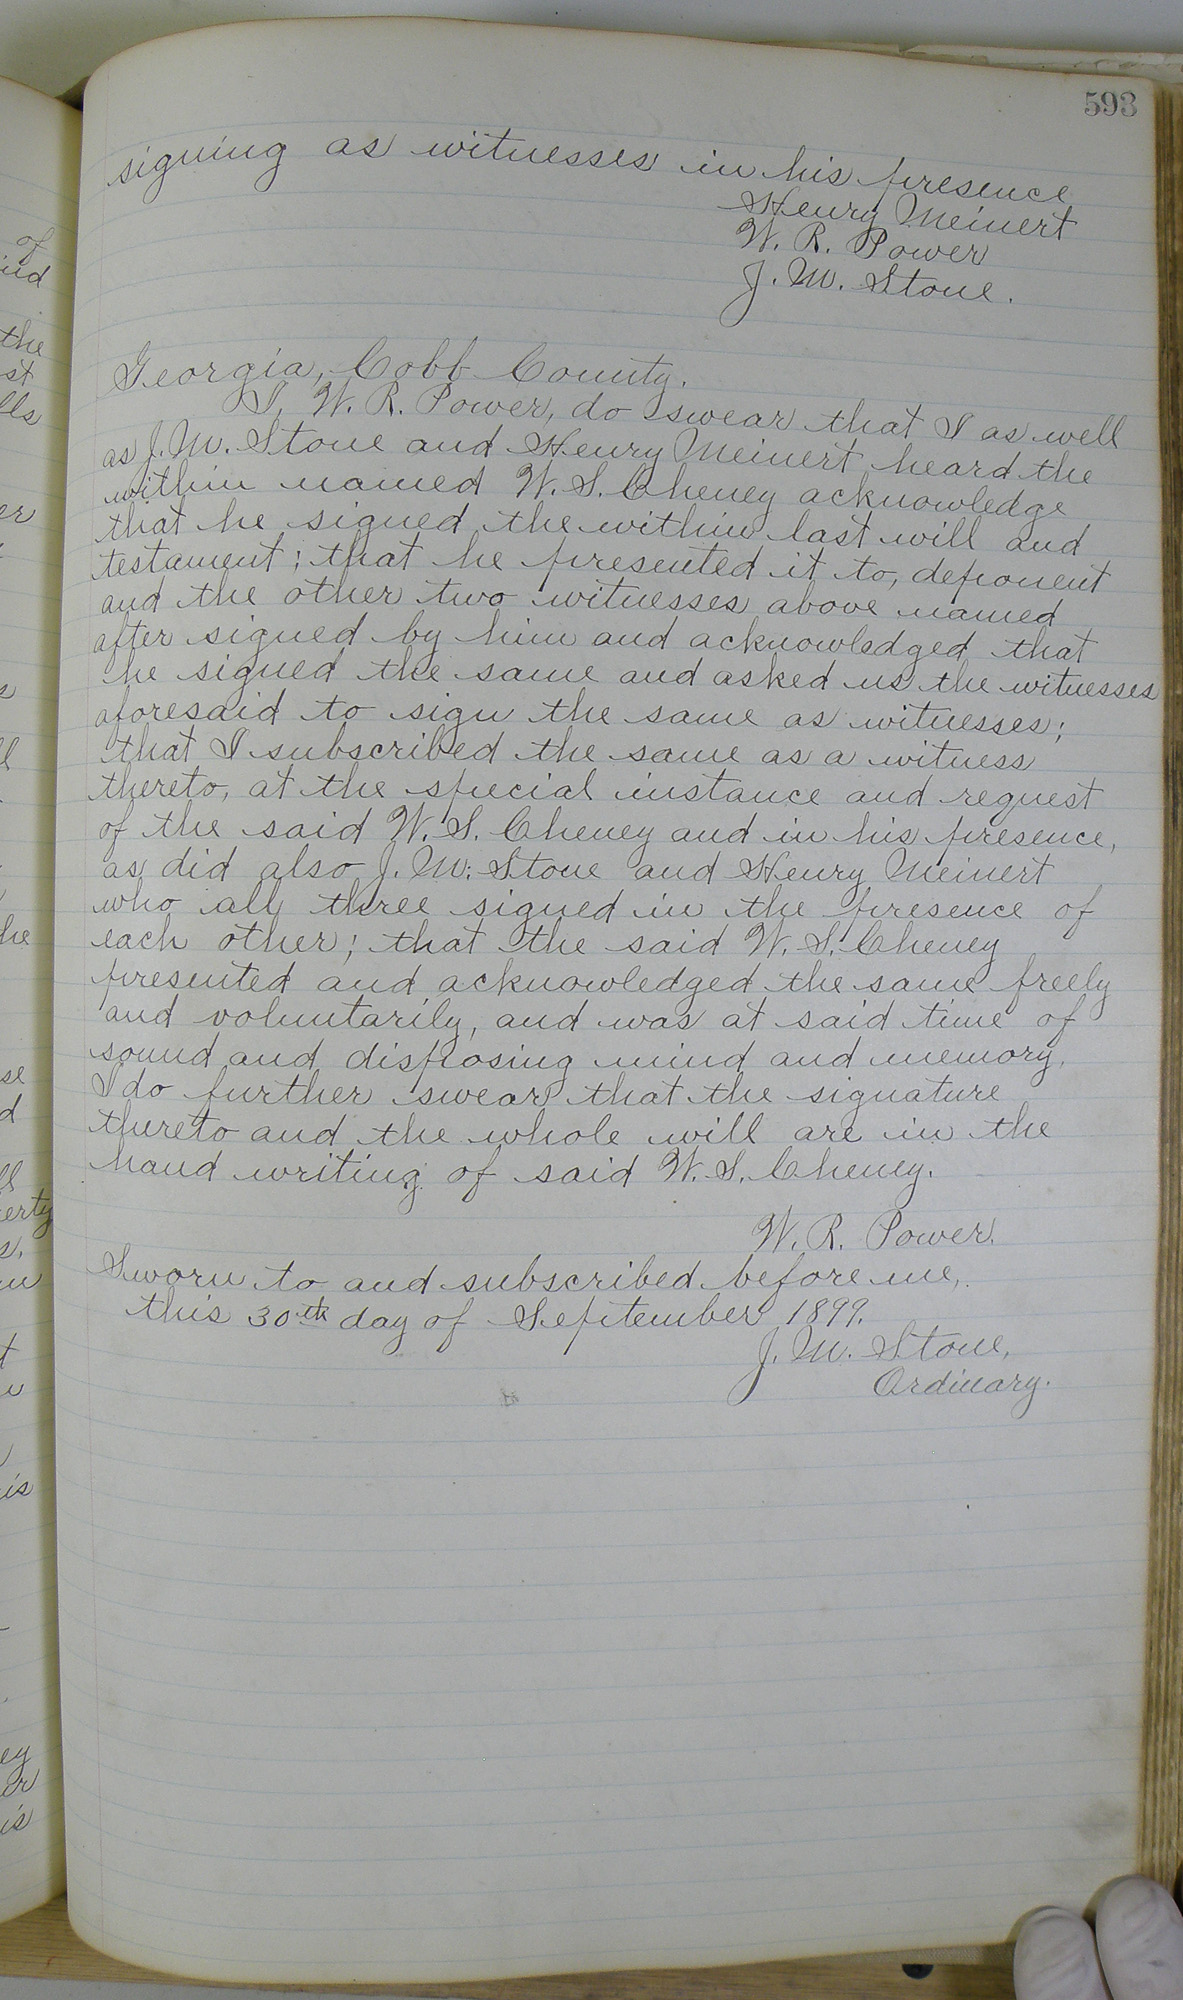 593
signing as witnesses in his presence
Henry Meinert
W. R. Power
J. M. Stone.
Georgia, Cobb County.
I, W. R. Power, do swear that I as well
as J. M. Stone and Henry Meinert heard the
within named W. S. Cheney acknowledge
that he signed the within last will and
testament; that he presented it to, deponent
and the other two witnesses above named
after signed by him and acknowledged that
he signed the same and asked us the witnesses
aforesaid to sign the same as witnesses;
that I subscribed the same as a witness
thereto, at the special instance and request
of the said W. S. Cheney and in his presence,
as did also J. M. Stone and Henry Meinert
who all three signed in the presence of
each other; that the said W. S. Cheney
presented and acknowledged the same freely
and voluntarily, and was at said time of
sound and disposing mind and memory.
I do further swear that the signature
thereto and the whole will are in the
hand writing of said W. S. Cheney.
W. R. Power.
Sworn to and subscribed before me,
this 30th day of September 1899.
J. M. Stone,
Ordinary.